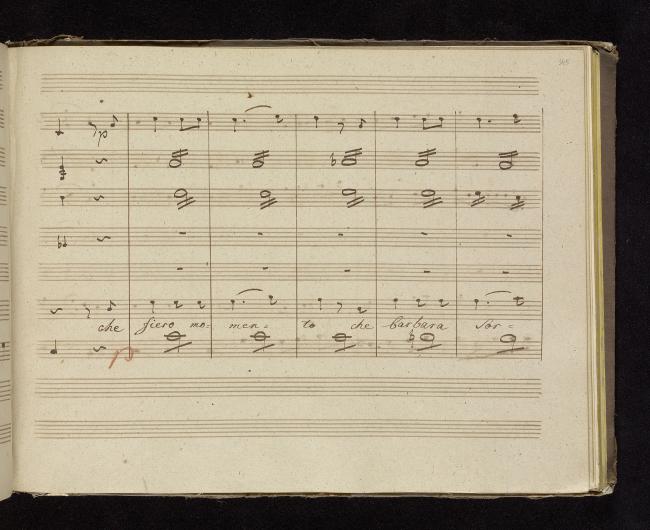 che fiero mo- men- to che barbara sor-